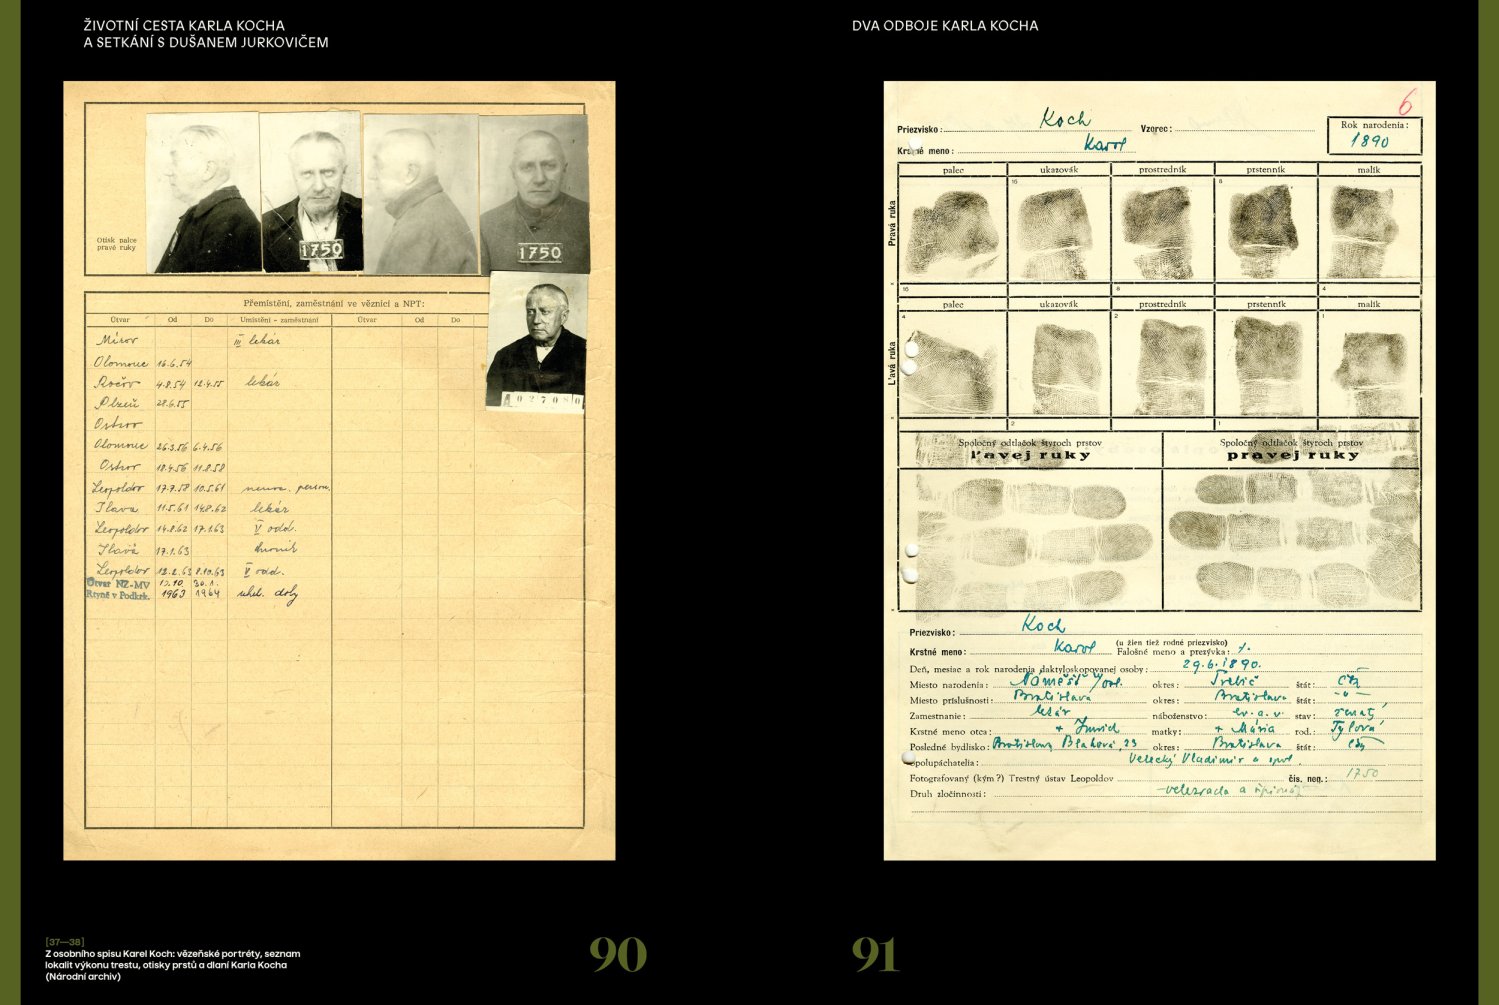 ŽIVOTNÍ CESTA KARLA KOCHA
A SETKÁNÍ S DUŠANEM JURKOVIČEM
Otisk palce
pravé ruky
1750
1750
A 027080
Přemístění, zaměstnání ve věznici a NPT:
Útvar Od Do Umístění - zaměstnání Útvar Od Do
Mírov III lekár
Olomouc 16.6.54
4.8.54 12.4.55 lekár
Plzeň 28.6.55
Ostrov
Olomouc 26.3.56 6.4.56
Ostrov 18.4.56 11.8.58
Leopoldov 17.7.58 10.5.61
Ilava 11.5.61 14.8.62 lekár
Leopoldov 14.8.62 17.1.63 V odd.
Ilava 17.1.63
Leopoldov 12.2.63 8.10.63 V odd.
Útvar NZ-MV
Rtyně v Podkrk. 1963 30.1. 1964 uhel. doly
[37—38]
Z osobního spisu Karel Koch: vězeňské portréty, seznam
lokalit výkonu trestu, otisky prstů a dlaní Karla Kocha
(Národní archiv)
90
DVA ODBOJE KARLA KOCHA
6
Priezvisko: Koch Vzorec:
Krstné meno: Karol
Rok narodenia:
1890
palec ukazovák prostredník prstenník malík
Pravá ruka
16 8
16 8 4
palec ukazovák prostredník prstenník malík
Ľavá ruka
4 2 1
2 1
Spoločný odtlačok štyroch prstov
ľavej ruky
Spoločný odtlačok štyroch prstov
pravej ruky
Priezvisko: Koch
(u žien tiež rodné priezvisko)
Krstné meno: Karol Falošné meno a prezývka:
Deň, mesiac a rok narodenia daktyloskopovanej osoby: 29.6.1890.
Miesto narodenia: Náměšť n/Osl. okres: Třebíč štát: ČSR
Miesto príslušnosti: Bratislava okres: Bratislava štát: -"-
Zamestnanie: lekár náboženstvo: ev. a. v. stav: ženatý
Krstné meno otca: + matky: + Mária rod.: Tylová
Posledné bydlisko: Bratislava, 23 okres: Bratislava štát:
Spolupáchatelia: Velecký Vladimír a spol.
Fotografovaný (kým?) Trestný ústav Leopoldov čís. neg.: 1750
Druh zločinnosti: -velezrada a špionáž
91